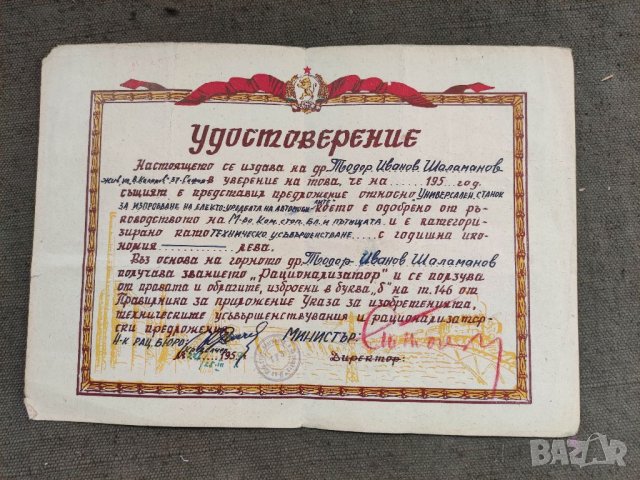 Удостоверение
Настоящето се издава на др. Тодор Иванов Шаламанов
жив. ул. В. Коларов 37 - София
в уверение на това, че на ......195... год.
същият е представил предложение относно Универсален станок
за изпробване на електо-уредбата на автомоби-
лите
което е одобрено от ръ-
ководството на М-во Ком. стоп. бл. и пътищата и е катего-
ризирано като техническо усъвършенстване... с годишна ико-
номия ——— лева.
Въз основа на горното др. Тодор Иванов Шаламанов
получава званието „Рационализатор" и се ползува
от правата и облагите, изброени в буква „б" на т. 146 от
Правилника за приложение Указа за изобретенията,
техническите усъвършенствувания и рационализатор-
ски предложения.
Н-к рац. бюро:
Министър:
195
Директор:
BAZAR